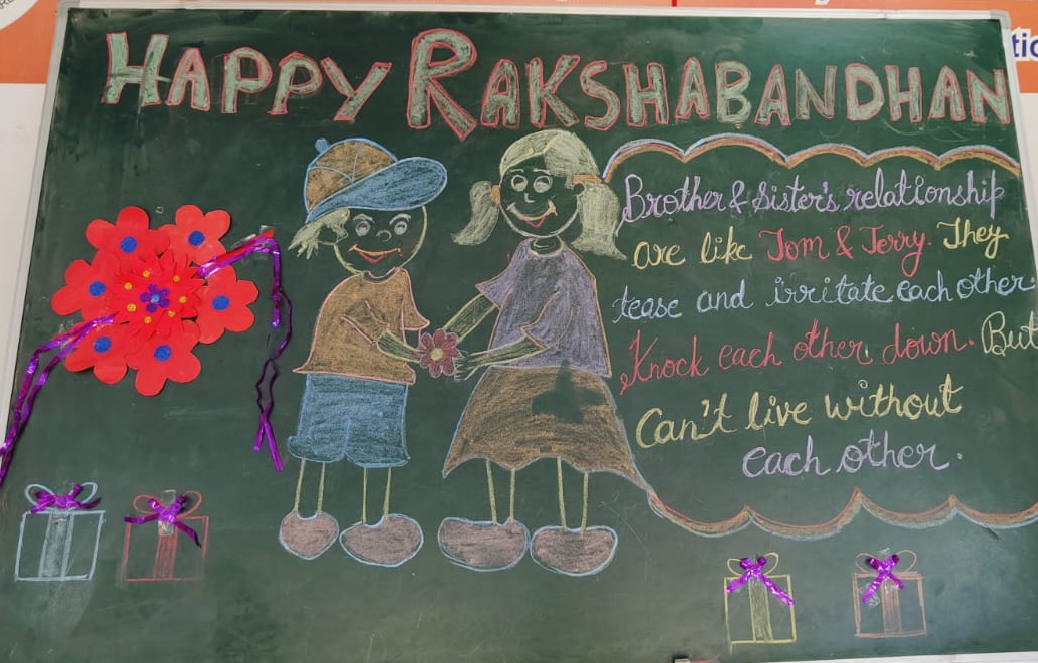 HAPPY RAKSHABANDHAN
Brother & Sister's relationship
are like Tom & Jerry. They
tease and irritate each other.
Knock each other down. But
Can't live without
each other.